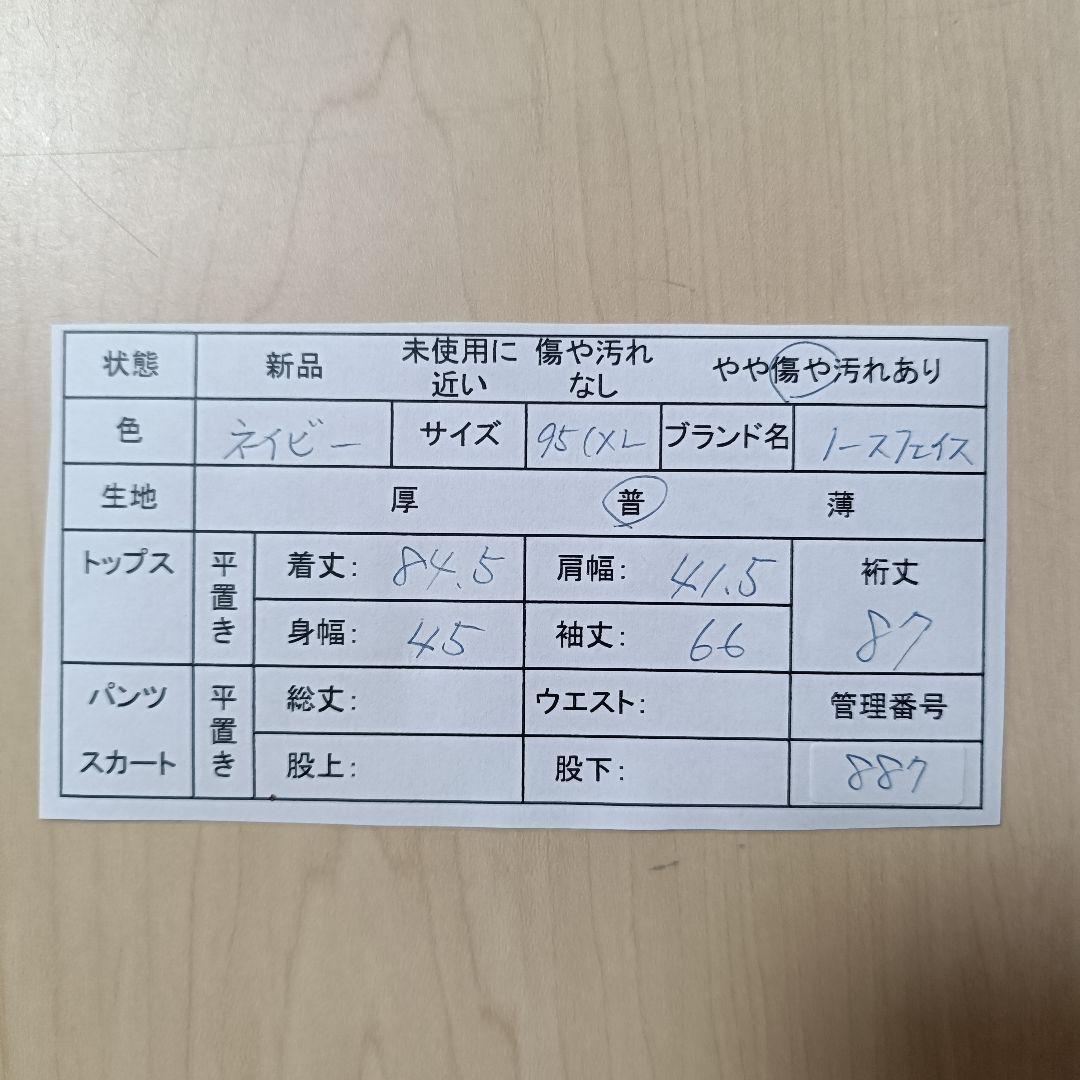 状態 新品 未使用に近い 傷や汚れなし やや傷や汚れあり
色 ネイビー サイズ 95(XL ブランド名 ノースフェイス
生地 厚 普 薄
トップス 平置き 着丈: 84.5 肩幅: 41.5 裄丈
身幅: 45 袖丈: 66 87
パンツ 平置き 総丈: ウエスト: 管理番号
スカート 股上: 股下: 887